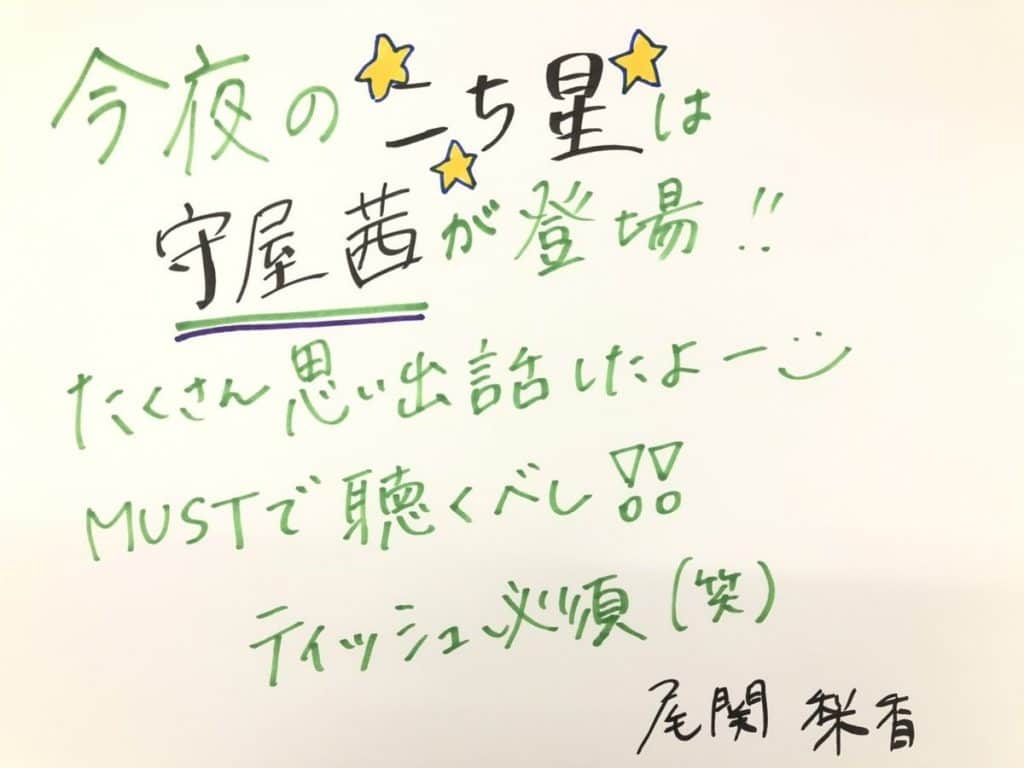 今夜のこち星は
守屋茜が登場!!
たくさん思い出話したよー
MUSTで聴くべし!!
ティッシュ必須(笑)
尾関梨香